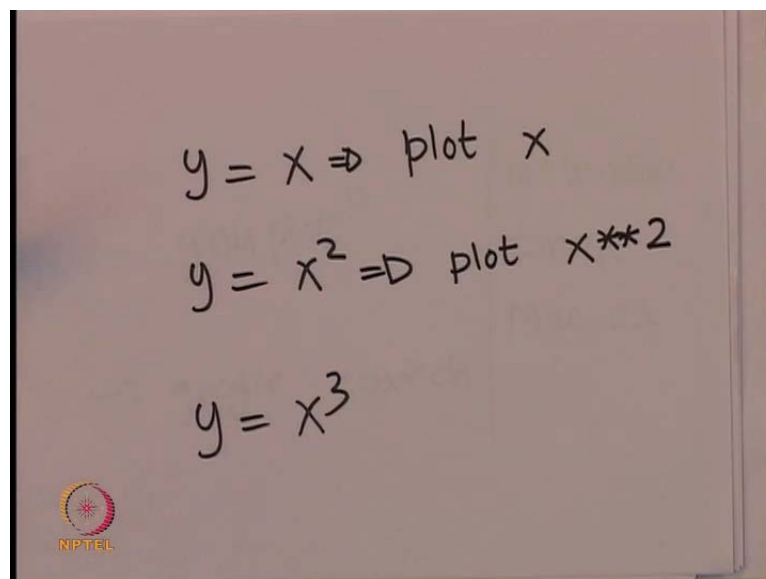 y = x ⇒ plot x
y = x² ⇒ plot x**2
y = x³
NPTEL